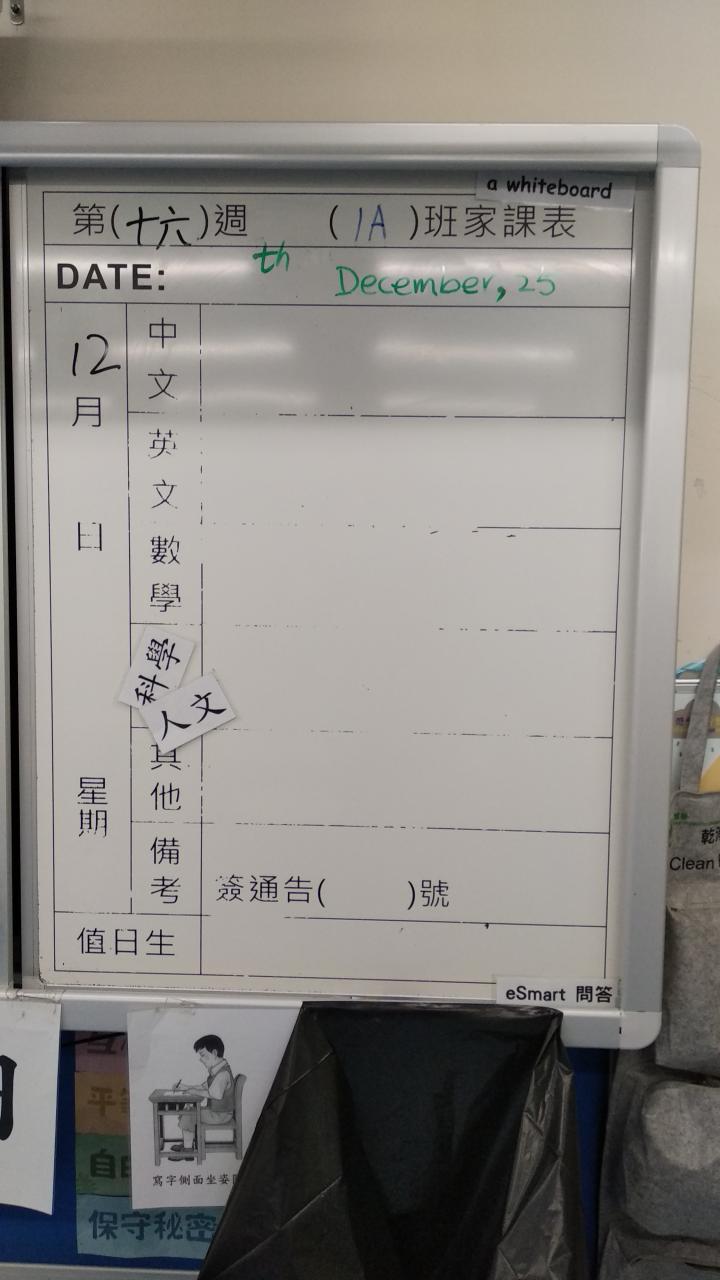 a whiteboard
第(十六)週 (1A)班家課表
DATE: th December, 25
12
月
日
星期
中文
英文
數學
科學
人文
其他
備考
簽通告( )號
值日生
eSmart 問答
寫字側面坐姿
平
自
保守秘密
乾
Clean